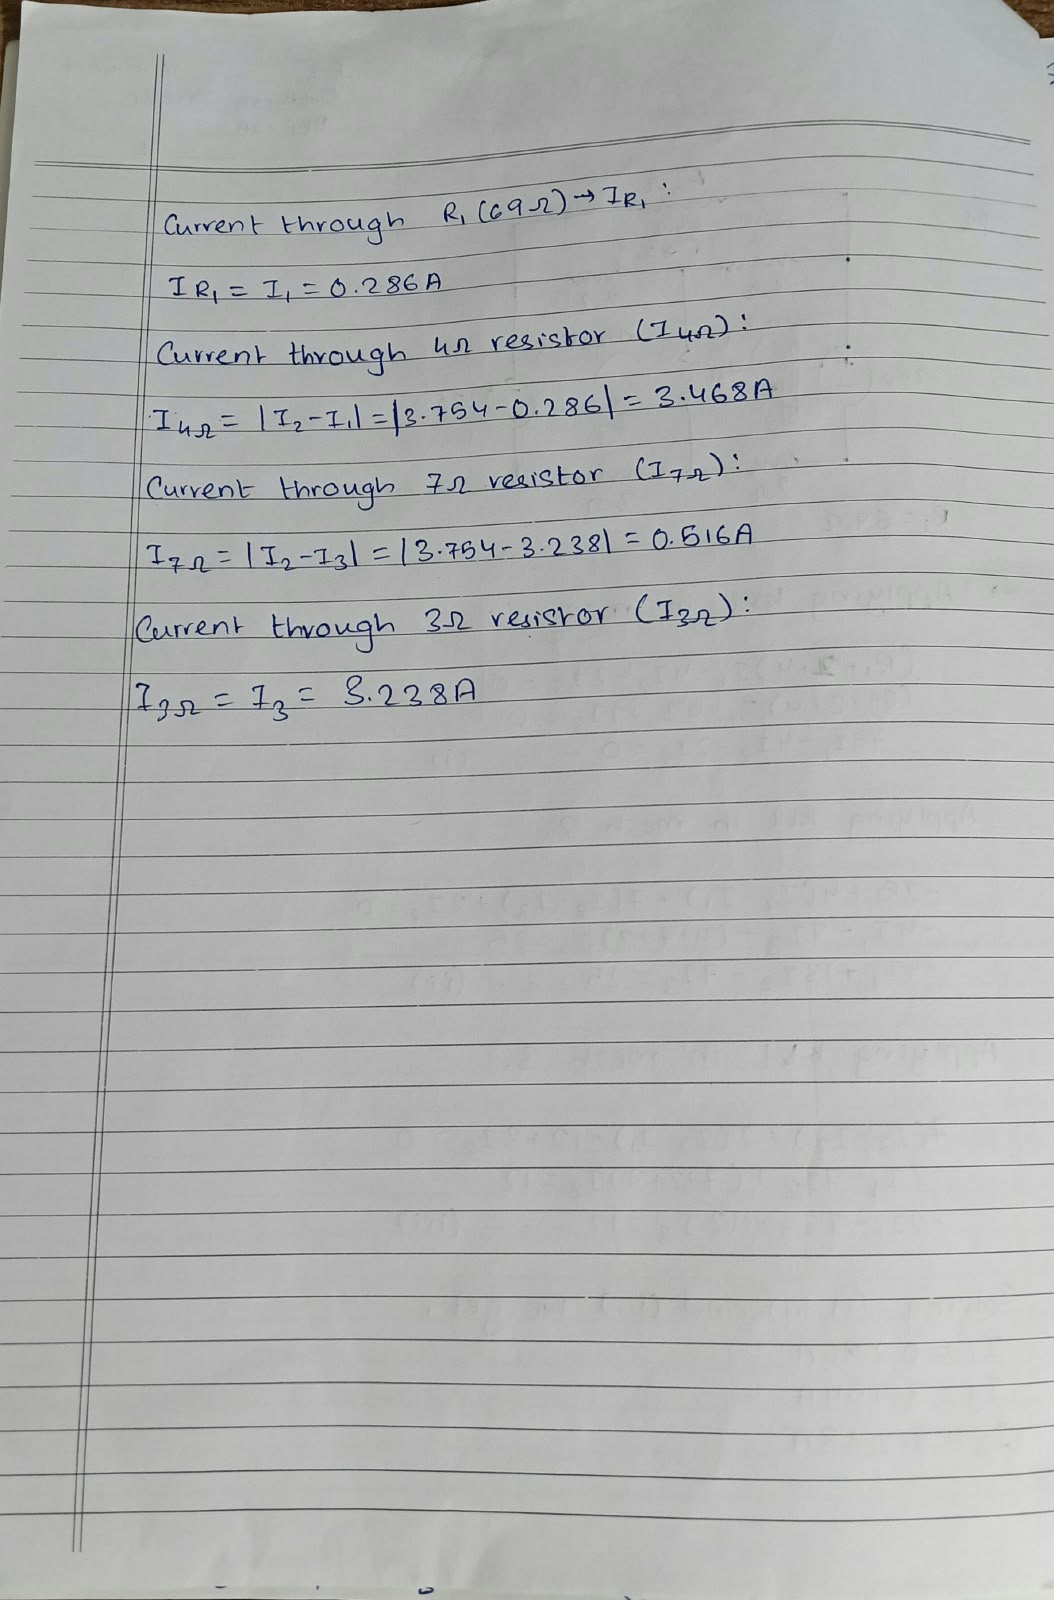 Current through R₁ (69Ω) → IR₁ :
IR₁ = I₁ = 0.286A
Current through 4Ω resistor (I4Ω) :
I4Ω = |I₂-I₁| = |3.754-0.286| = 3.468A
Current through 7Ω resistor (I7Ω) :
I7Ω = |I₂-I₃| = |3.754-3.238| = 0.516A
Current through 3Ω resistor (I3Ω) :
I3Ω = I₃ = 3.238A